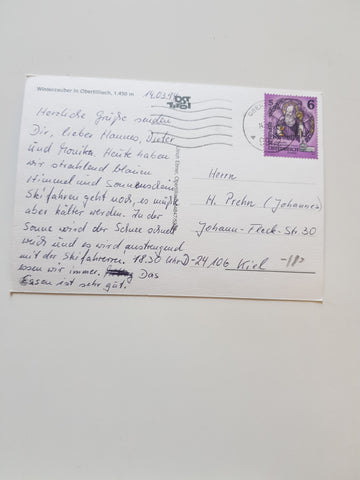 Winterzauber in Obertilliach, 1.450 m
14.03.94
Herzliche Grüße senden
Dir, lieber Hannes, Dieter
und Monika. Heute haben
wir strahlend blauen
Himmel und Sonnenschein.
Skifahren geht noch, es müßte
aber kälter werden. In der
Sonne wird der Schnee schnell
weich und es wird anstrengend
mit der Skifahrerei. 18.30 Uhr
essen wir immer. Das
Essen ist sehr gut.
POST
5
6
Herrn
H. Prehn (Johannes)
Johann-Fleck-Str. 30
D-24106 Kiel